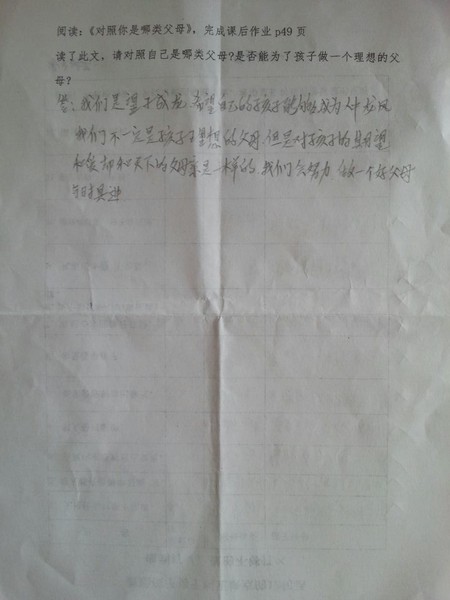 阅读:《对照你是哪类父母》,完成课后作业 p49 页
读了此文,请对照自己是哪类父母?是否能为了孩子做一个理想的父
母?
答:我们是望子成龙 希望自己的孩子能够成为人中龙凤
我们不一定是孩子理想的父母,但是对孩子的期望
和爱都和天下的父母亲是一样的,我们会努力 做一个好父母
与时具进